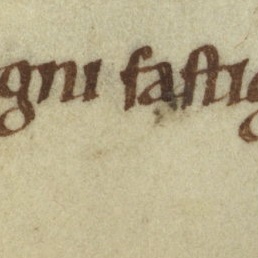 gni fastig